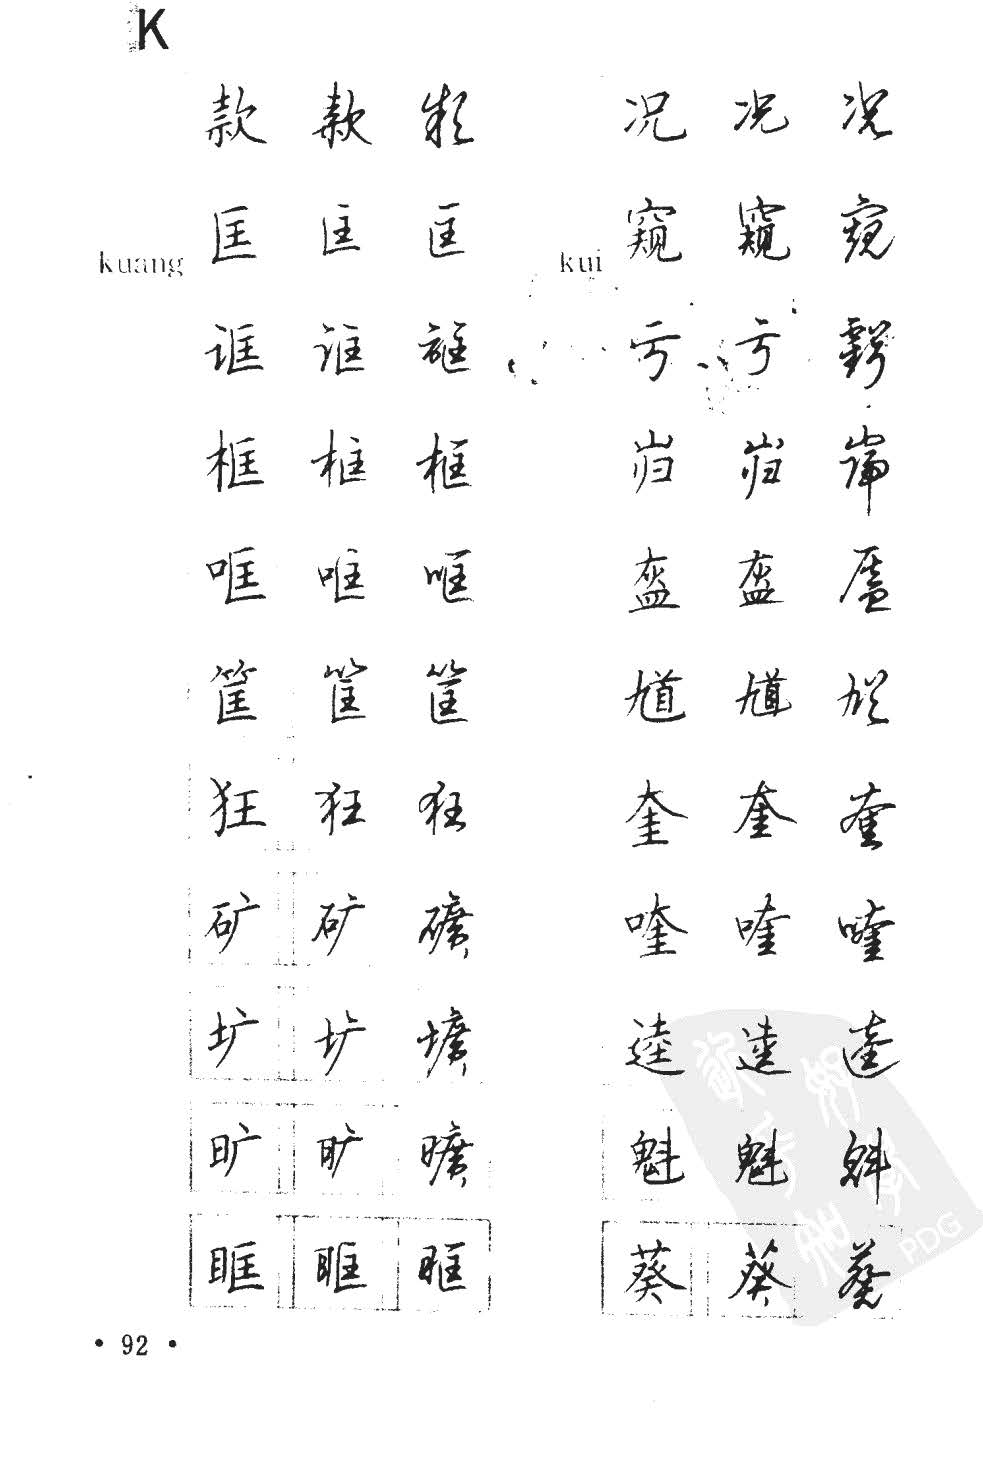 K
款 款 款
kuang 匡 匡 匡
诓 诓 誆
框 框 框
哐 哐 哐
筐 筐 筐
狂 狂 狂
矿 矿 礦
圹 圹 壙
旷 旷 曠
眶 眶 眶
况 况 况
kui 窥 窺 窥
亏 亏 虧
岿 岿 巋
盔 盔 盔
馗 馗 馗
奎 奎 奎
喹 喹 喹
逵 逵 逵
魁 魁 魁
葵 葵 葵
PDG
• 92 •